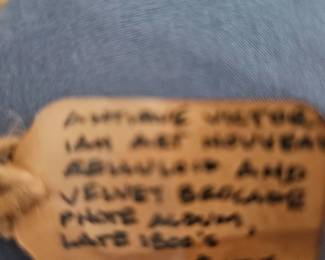 ANTIQUE VICTOR
IAN ART NOUVEA
CELLULOID AND
VELVET BROCADE
PHOTO ALBUM,
LATE 1800'S,